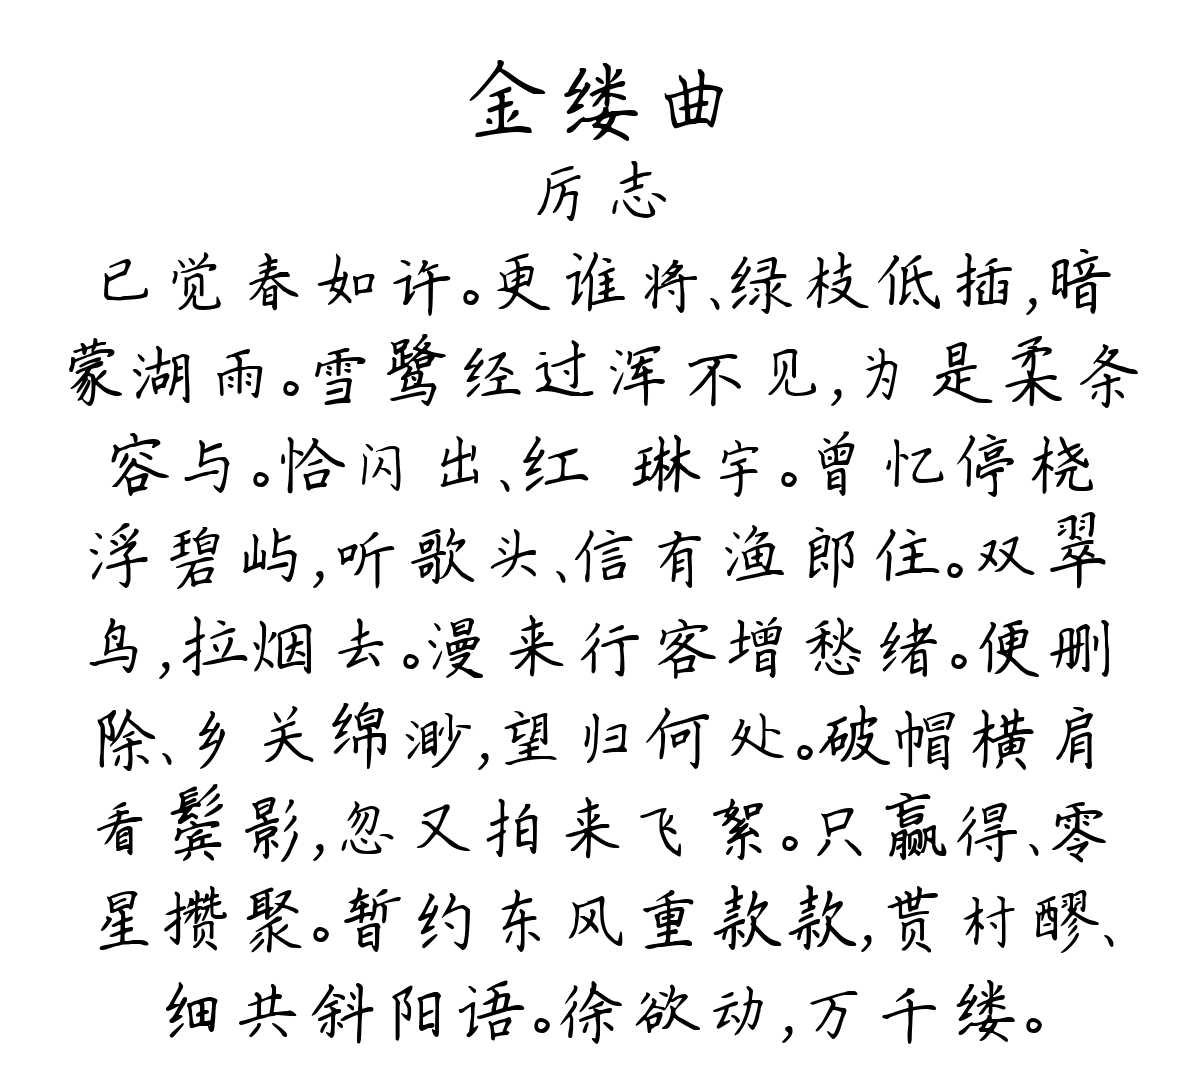 金缕曲
厉志
已觉春如许。更谁将、绿枝低插,暗
蒙湖雨。雪鹭经过浑不见,为是柔条
容与。恰闪出、红 琳宇。曾忆停桡
浮碧屿,听歌头、信有渔郎住。双翠
鸟,拉烟去。漫来行客增愁绪。便删
除、乡关绵渺,望归何处。破帽横肩
看鬓影,忽又拍来飞絮。只赢得、零
星攒聚。暂约东风重款款,贳村醪、
细共斜阳语。徐欲动,万千缕。